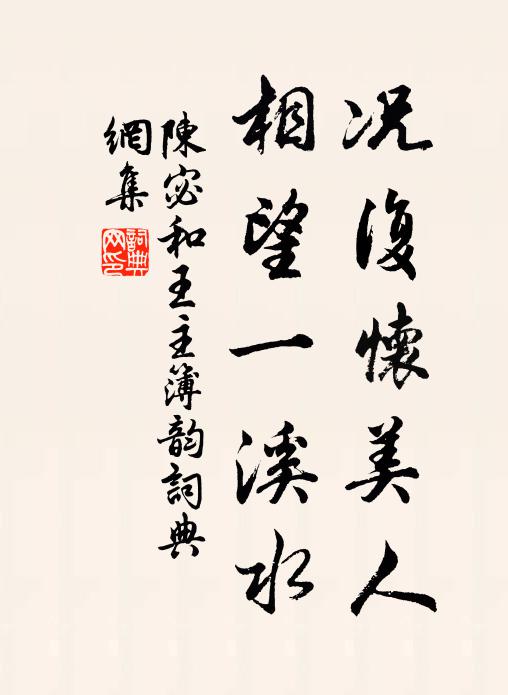 况復懷美人
相望一溪水
陳宓和王主簿韵詞典
網集
詞典
网印